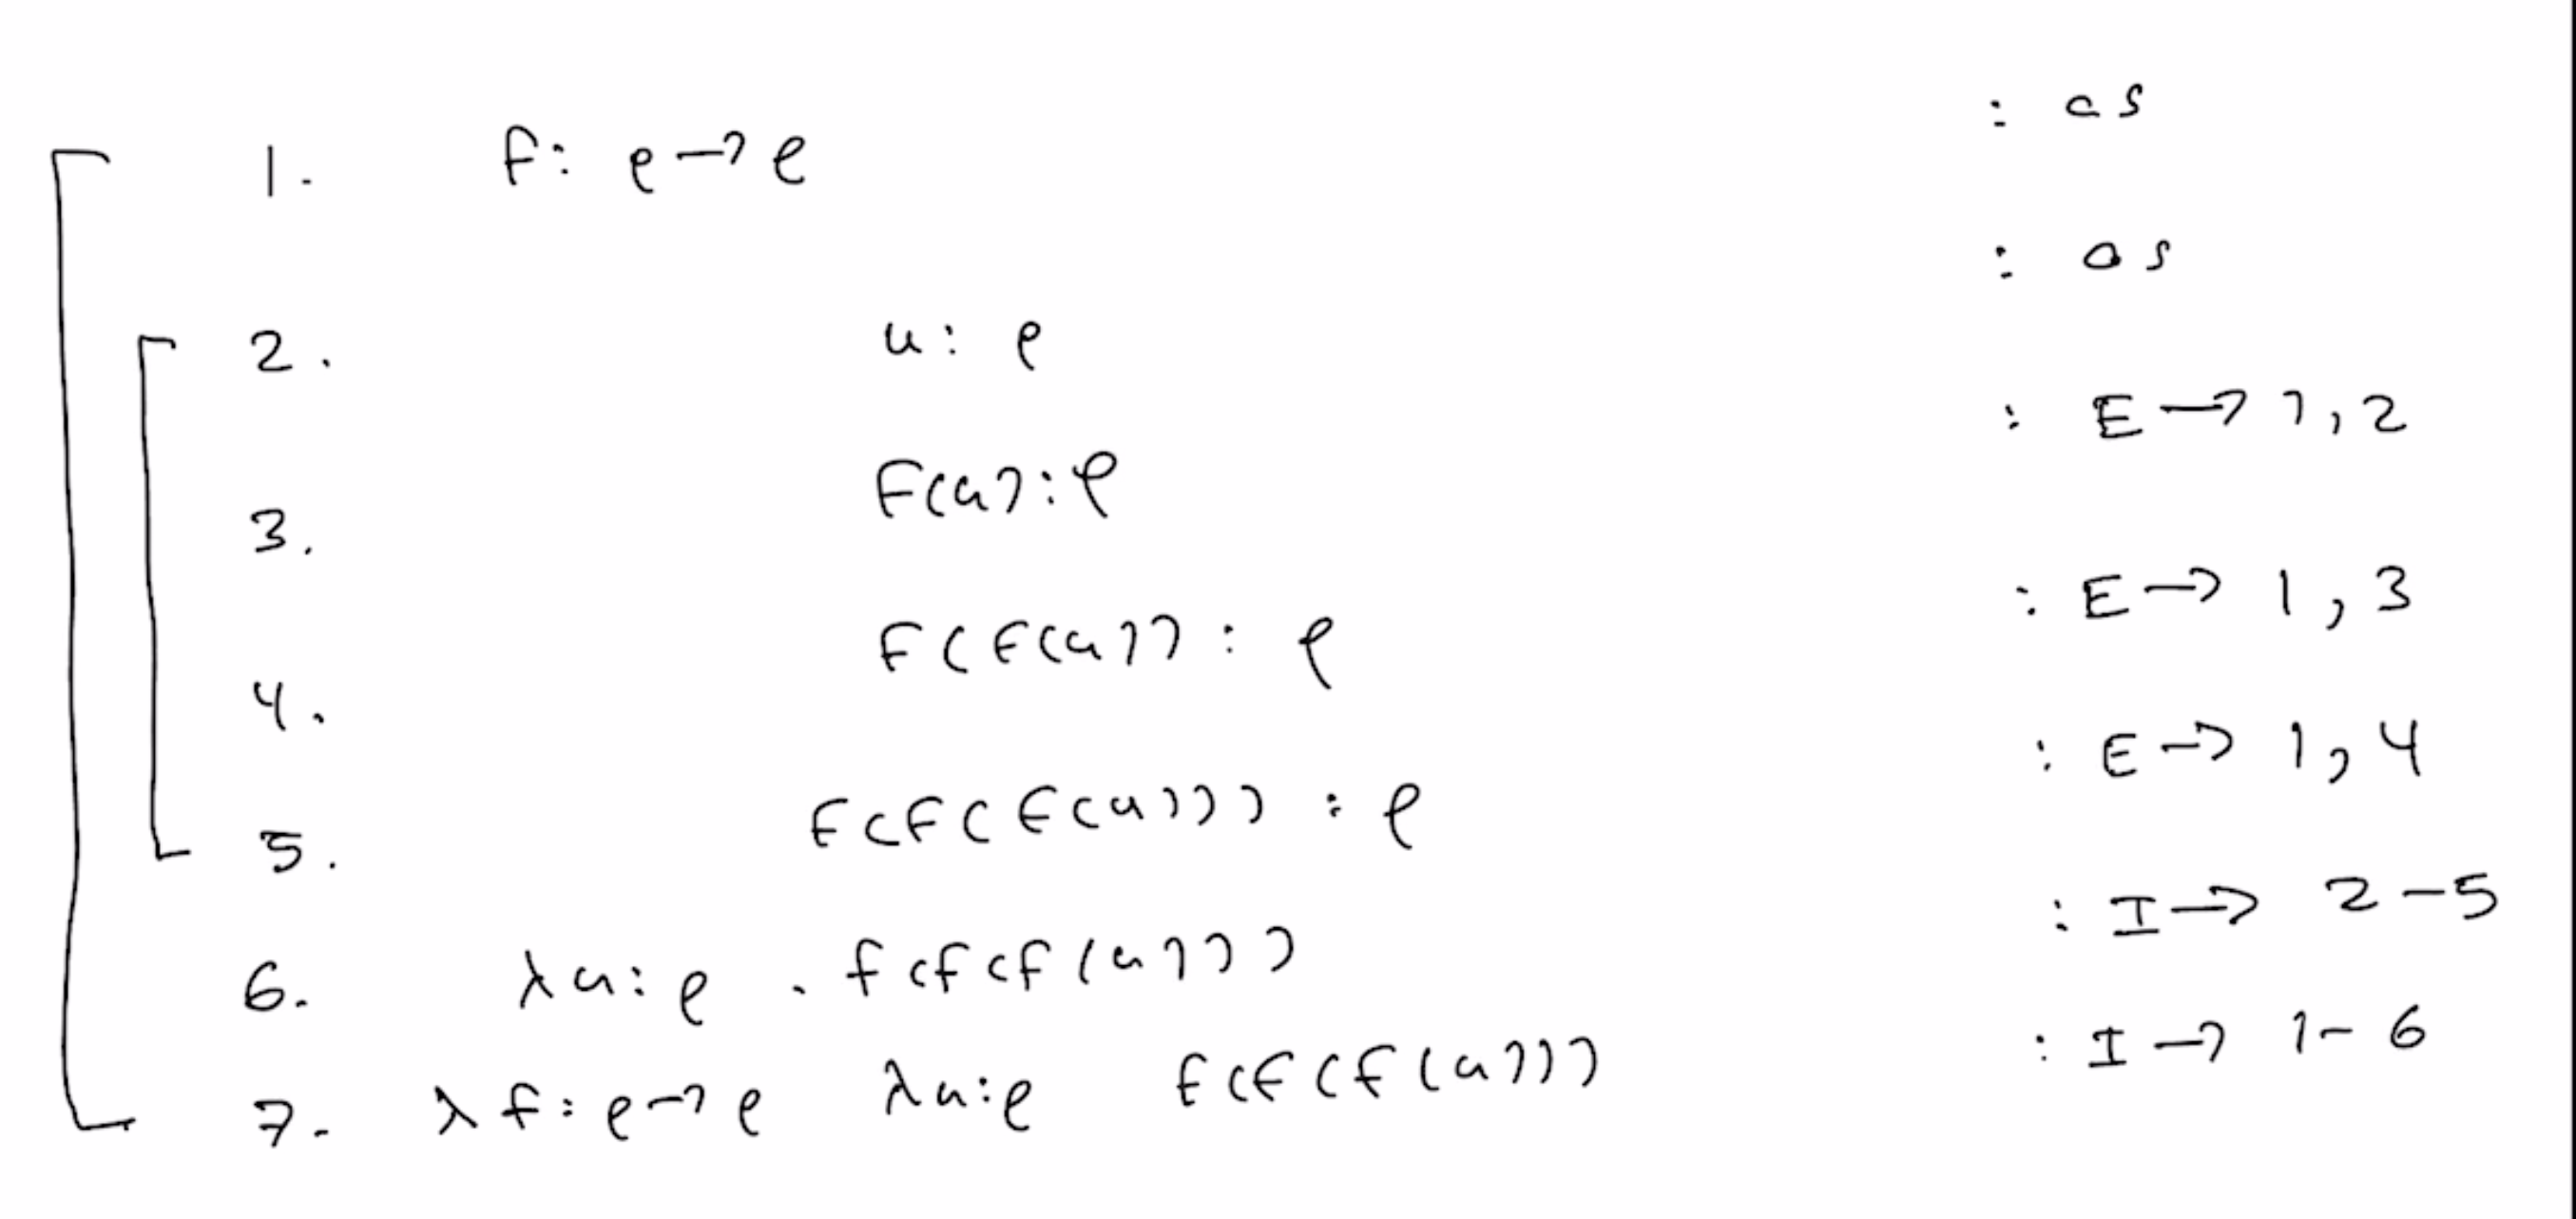 1. f: ρ→ρ : as
2. u: ρ : as
3. F(u): ρ : E→ 1,2
4. F(F(u)) : ρ : E→ 1,3
5. F(F(F(u))) : ρ : E→ 1,4
6. λu:ρ . f(f(f(u))) : I→ 2-5
7. λf:ρ→ρ λu:ρ F(F(F(u))) : I→ 1-6